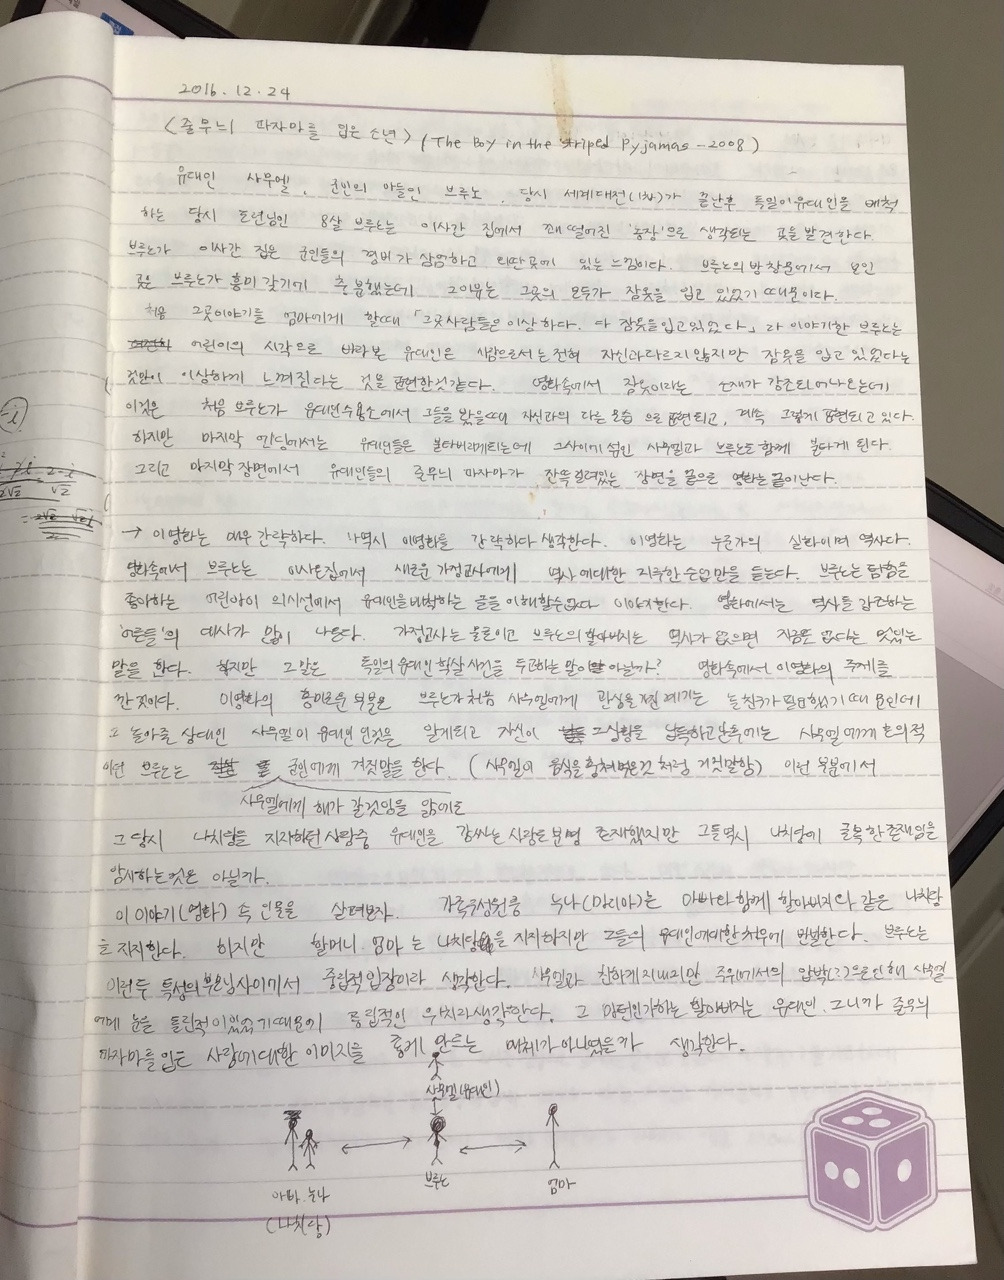 2016. 12. 24
<줄무늬 파자마를 입은 소년> (The Boy in the striped Pyjamas - 2008)
유대인 사무엘, 군인의 아들인 브루노. 당시 세계대전(1차)가 끝난후 독일이 유대인을 배척
하는 당시 도련님인 8살 브루노는 이사간 집에서 꽤 떨어진 '농장'으로 생각되는 곳을 발견한다.
브루노가 이사간 집은 군인들의 경비가 삼엄하고 외딴곳에 있는 느낌이다. 브루노의 방 창문에서 보인
곳은 브루노가 흥미 갖기에 충분했는데 그이유는 그곳의 모두가 잠옷을 입고 있었기 때문이다.
처음 그곳이야기를 엄마에게 할때 「그곳사람들은 이상하다. 다 잠옷을입고있었다」라 이야기한 브루노는
어린이의 시각으로 바라본 유대인은 사람으로서는 전혀 자신과다르지않지만 잠옷을 입고 있었다는
것만이 이상하게 느껴진다는 것을 표현한것같다. 영화속에서 잠옷이라는 소재가 강조되어나오는데
이것은 처음 브루노가 유대인수용소에서 그들을 봤을때 자신과의 다른 모습 으로 표현되고, 계속 그렇게 표현되고 있다.
하지만 마지막 엔딩에서는 유대인들은 불타버리게되는데 그사이에 섞인 사무엘과 브루노도 함께 불타게 된다.
그리고 마지막 장면에서 유대인들의 줄무늬 파자마가 잔뜩 걸려있는 장면을 끝으로 영화는 끝이난다.
→ 이영화는 매우 간략하다. 나역시 이영화를 간략하다 생각한다. 이영화는 누군가의 실화이며 역사다.
영화속에서 브루노는 이사온집에서 새로운 가정교사에게 역사에대한 지루한 수업만을 듣는다. 브루노는 탐험을
좋아하는 어린아이 의시선에서 유대인을비방하는 글을 이해할수없다 이야기한다. 영화에서는 역사를 강조하는
'어른들'의 대사가 많이 나온다. 가정교사는 물론이고 브루노의 할아버지는 역사가 없으면 지금도 없다는 멋있는
말을 한다. 하지만 그말은 독일의 유대인 학살 사건을 두고하는 말이 아닐까? 영화속에서 이영화의 주제를
깐것이다. 이영화의 흥미로운 부분은 브루노가 처음 사무엘에게 관심을 가진 계기는 놀친구가 필요했기 때문인데
그 놀아줄 상대인 사무엘이 유대인인것을 알게되고 자신이 그상황을 납득하고난후에는 사무엘에게 호의적
이던 브루노는 군인에게 거짓말을 한다. (사무엘이 음식을 훔쳐먹은것 처럼 거짓말함) 이런 부분에서
사무엘에게 해가 갈것임을 앎에도
그 당시 나치당을 지지하던 사람중 유대인을 감싸는 사람도 분명 존재했지만 그들역시 나치당에 굴복한존재임을
암시하는것은 아닐까.
이 이야기(영화) 속 인물을 살펴보자. 가족구성원중 누나(마리아)는 아빠와 함께 할아버지와 같은 나치당
을 지지한다. 하지만 할머니 엄마는 나치당을 지지하지만 그들의 유대인에대한 처우에 반발한다. 브루노는
이런두 특성의 부모님사이에서 중립적입장이라 생각한다. 사무엘과 친하게지내지만 주위에서의 압박(?)으로인해 사무엘
에게 눈을 돌린적이있었기때문에 중립적인 위치라생각한다. 그 할아버지는 유대인. 그니까 줄무늬
파자마를 입은 사람에대한 이미지를 좋게 만드는 매체가 아니었을까 생각한다.
사무엘(유대인)
아빠. 누나
브루노
엄마
(나치당)